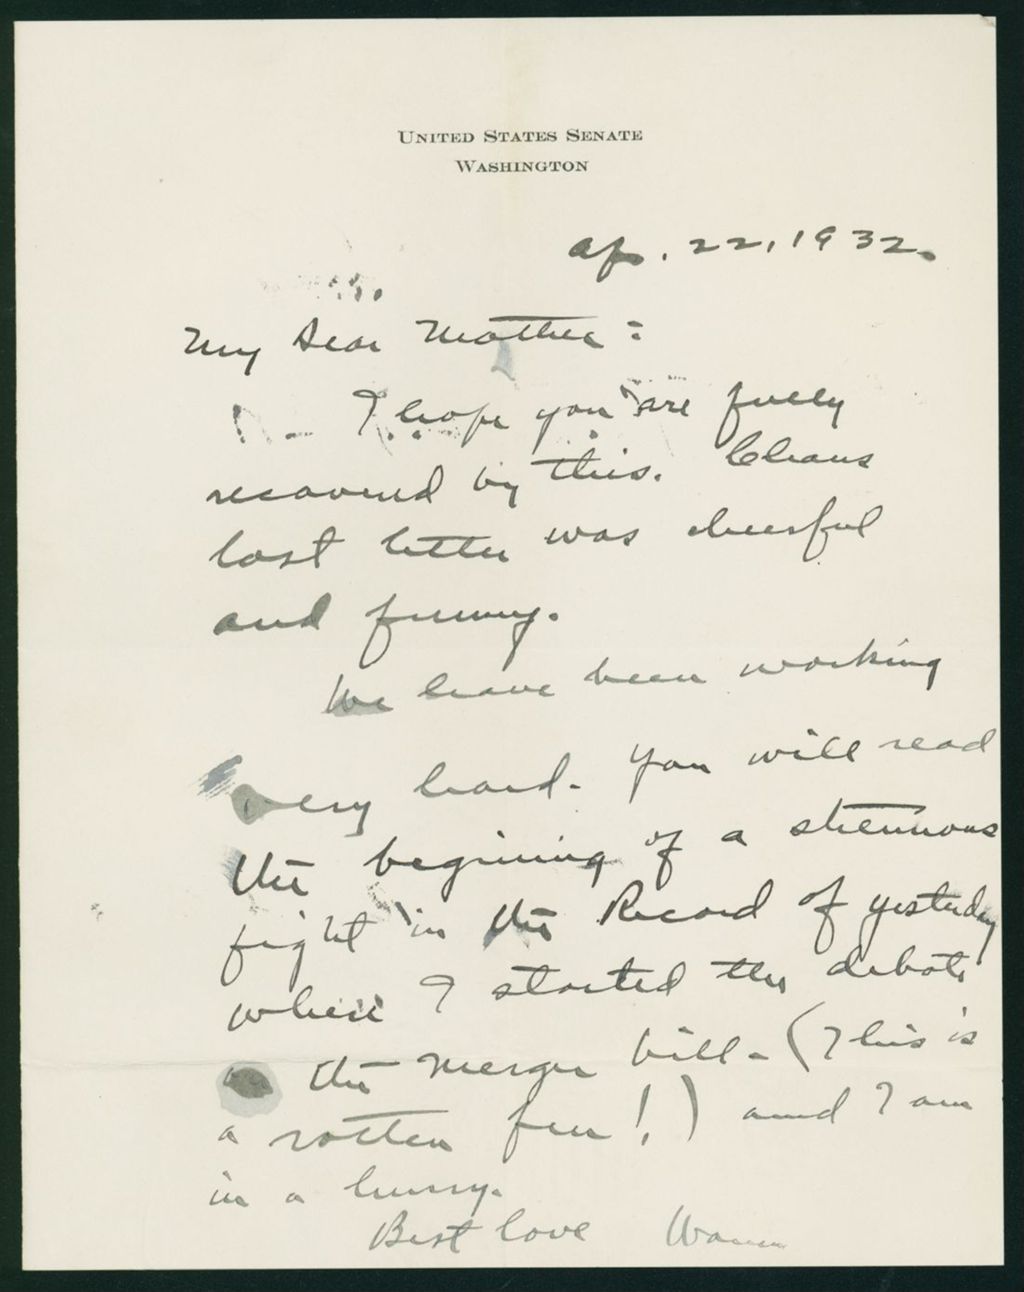 UNITED STATES SENATE
WASHINGTON
Ap. 22, 1932.
My Dear Mother:
I hope you are fully
recovered by this. Chauns
last letter was cheerful
and funny.
We have been working
very hard. You will read
the begining of a strenuous
fight in the Record of yesterday
when I started the debate
the merger bill - (This is
a rotten pen!) and I am
in a hurry.
Best love Warren